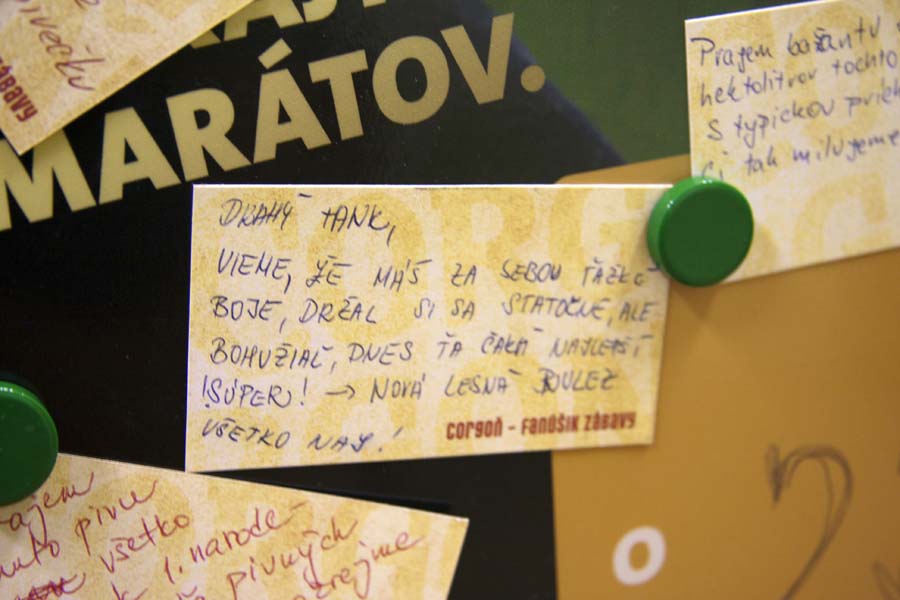 ZÁBAVY
MARÁTOV.
Prajem bažantu
hektolitrov tochto
s typickou
tak milujeme
DRAHÝ TANK,
VIEME, ŽE MÁŠ ZA SEBOU ŤAŽKÉ
BOJE, DRŽAL SI SA STATOČNE, ALE
BOHUŽIAĽ, DNES ŤA ČAKÁ NAJLEPŠÍ
!SÚPER! → NOVÁ LESNÁ BULEZ
VŠETKO NAJ!
corgoň - Fanúšik zábavy
ajem
pivu
všetko
k 1. narode-
pivných